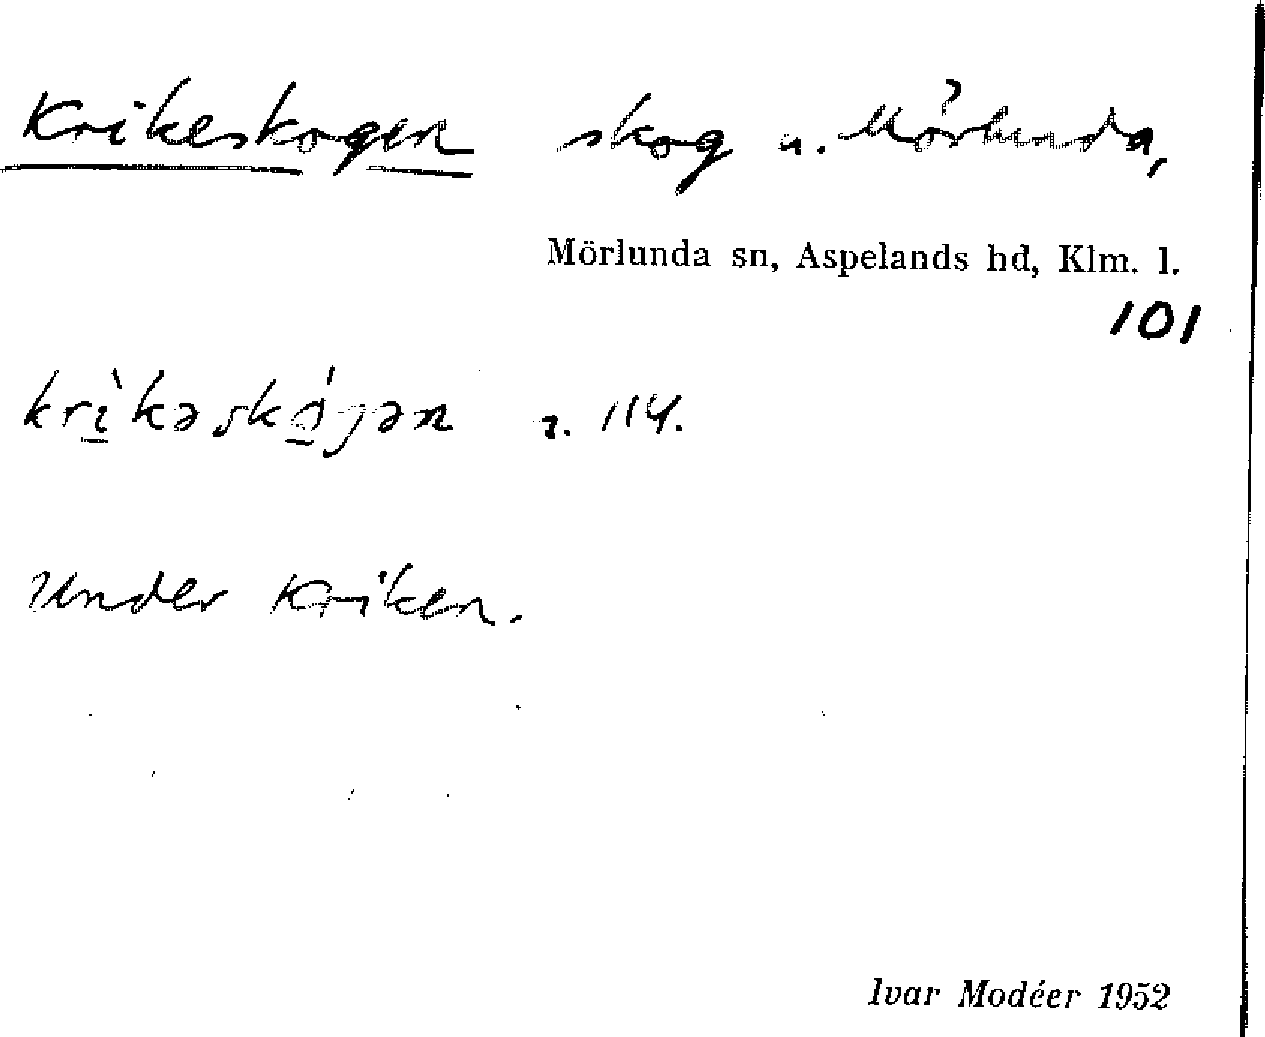 Krikeskogen skog u. Mörlunda,
Mörlunda sn, Aspelands hd, Klm. l.
101
krìkəskógən 2. 114.
Under Kriken.
Ivar Modéer 1952